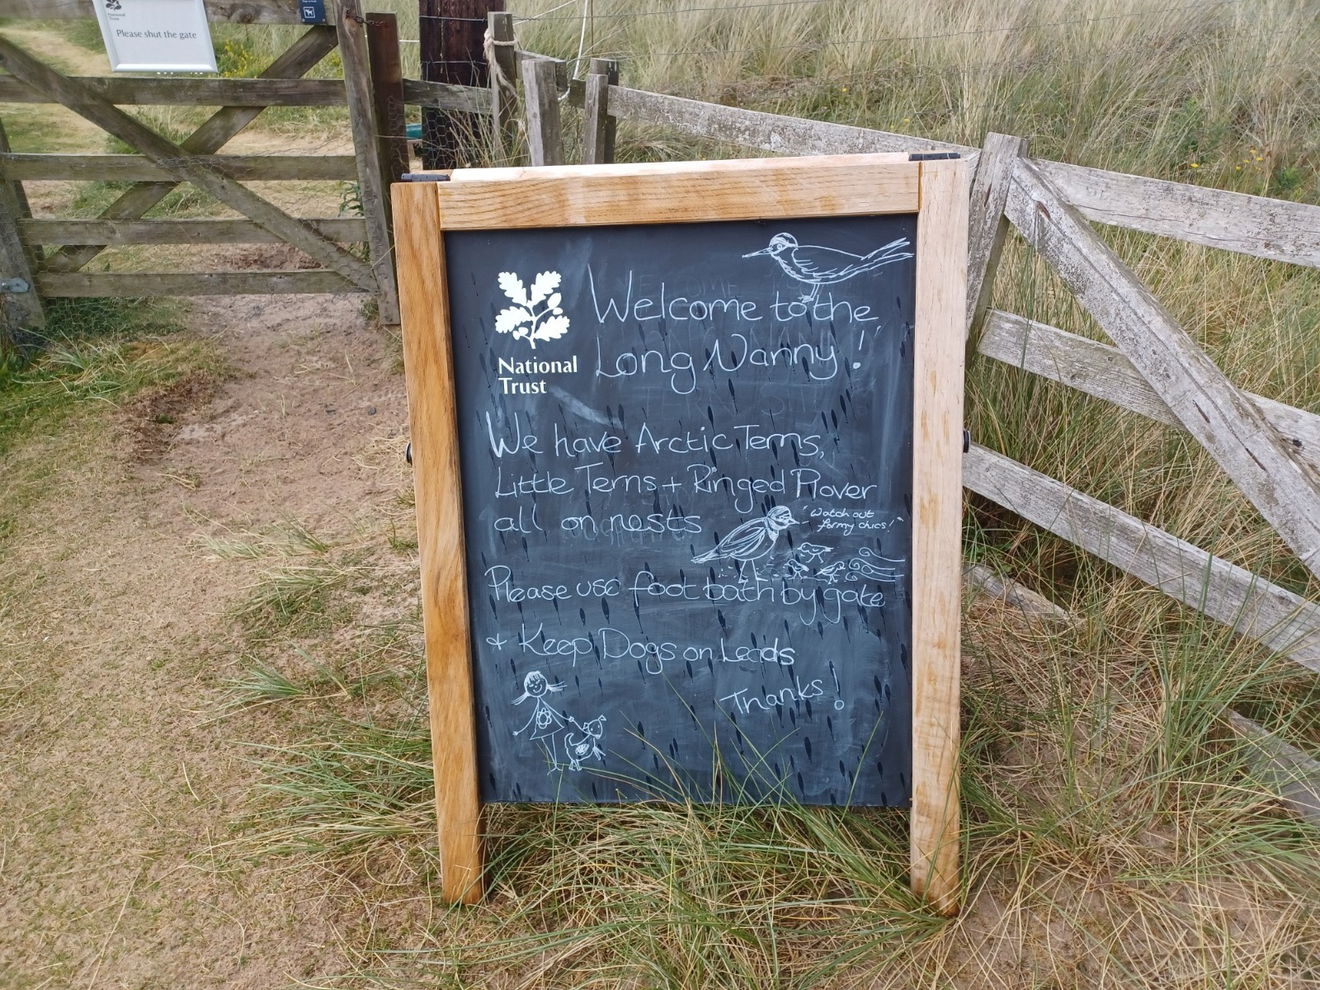 National
Trust
Please shut the gate
National
Trust
Welcome to the
Long Nanny!
We have Arctic Terns,
Little Terns + Ringed Plover
all on nests
"Watch out
for my chics!"
Please use foot bath by gate
+ Keep Dogs on Leads
Thanks!